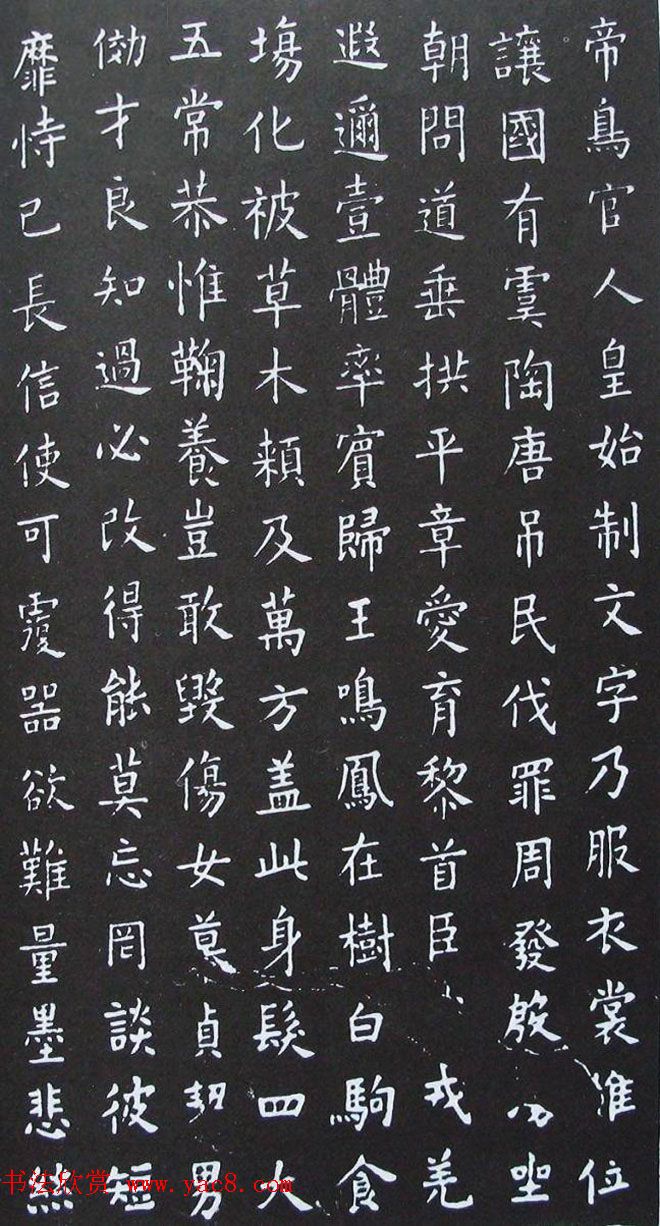 帝鳥官人皇始制文字乃服衣裳推位
讓國有虞陶唐吊民伐罪周發殷 坐
朝問道垂拱平章愛育黎首臣 戎羌
遐邇壹體率賓歸王鳴鳳在樹白駒食
場化被草木賴及萬方盖此身髮四大
五常恭惟鞠養豈敢毀傷女慕貞 男
効才良知過必改得能莫忘罔談彼短
靡恃己長信使可覆器欲難量墨悲
书法欣赏 www.yac8.com